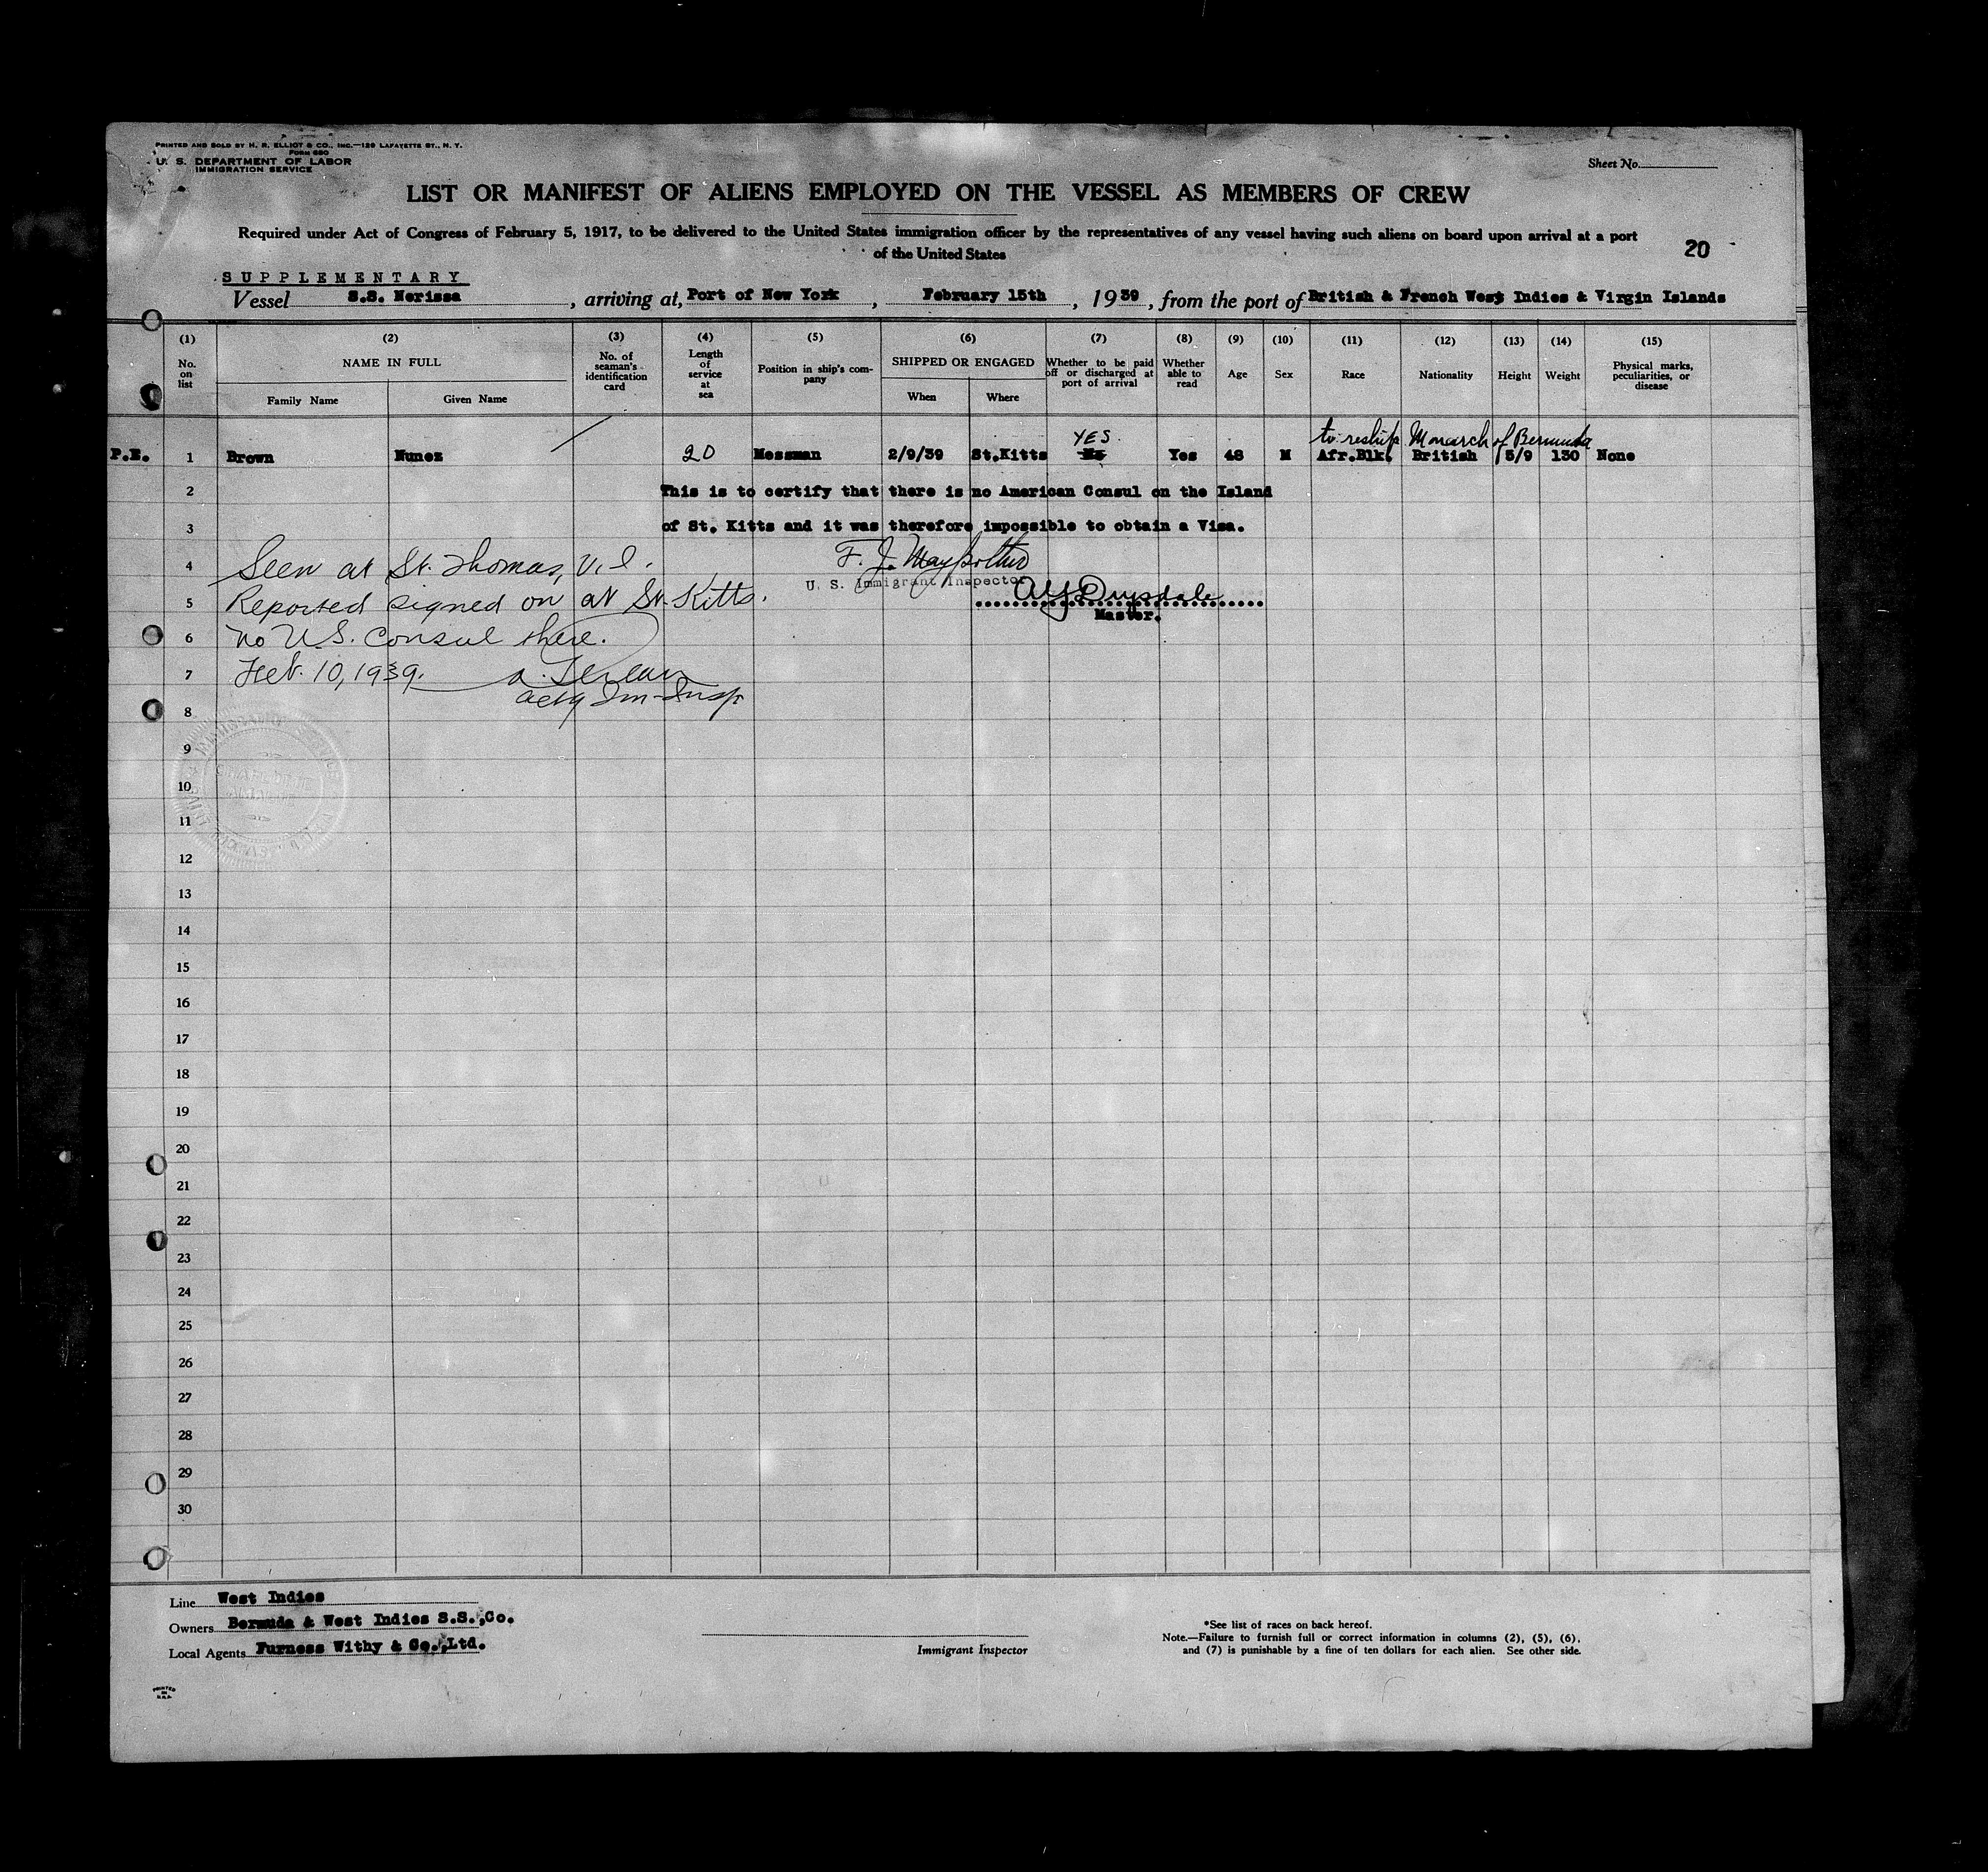 PRINTED AND SOLD BY H. R. ELLIOT & CO., INC.—129 LAFAYETTE ST., N. Y.
FORM 680
U. S. DEPARTMENT OF LABOR
IMMIGRATION SERVICE
Sheet No.
LIST OR MANIFEST OF ALIENS EMPLOYED ON THE VESSEL AS MEMBERS OF CREW
Required under Act of Congress of February 5, 1917, to be delivered to the United States immigration officer by the representatives of any vessel having such aliens on board upon arrival at a port
of the United States
20
SUPPLEMENTARY
Vessel S.S. Nerissa, arriving at, Port of New York, February 15th, 1939, from the port of British & French West Indies & Virgin Islands
(1) (2) (3) (4) (5) (6) (7) (8) (9) (10) (11) (12) (13) (14) (15)
No. on list
NAME IN FULL
Family Name Given Name
No. of seaman's identification card
Length of service at sea
Position in ship's company
SHIPPED OR ENGAGED
When Where
Whether to be paid off or discharged at port of arrival
Whether able to read
Age
Sex
Race
Nationality
Height
Weight
Physical marks, peculiarities, or disease
YES. to reship Monarch of Bermuda
P.E. 1 Brown Nunez 20 Messman 2/9/39 St.Kitts No Yes 48 M Afr.Blk. British 5/9 130 None
2 This is to certify that there is no American Consul on the Island
3 of St. Kitts and it was therefore impossible to obtain a Visa.
4 Seen at St. Thomas, V.I. F. J.
U. S. Immigrant Inspector
5 Reported signed on at St. Kitts. Drysdale
Master.
6 No U.S. Consul there.
7 Feb. 10, 1939.
Actg Im-Insp
8
9
CHARLOTTE
10
AMALIE
11
12
13
14
15
16
17
18
19
20
21
22
23
24
25
26
27
28
29
30
Line West Indies
Owners Bermuda & West Indies S.S.,Co.
Local Agents Furness Withy & Co.,Ltd.
Immigrant Inspector
*See list of races on back hereof.
Note.—Failure to furnish full or correct information in columns (2), (5), (6),
and (7) is punishable by a fine of ten dollars for each alien. See other side.
PRINTED
IN
U.S.A.